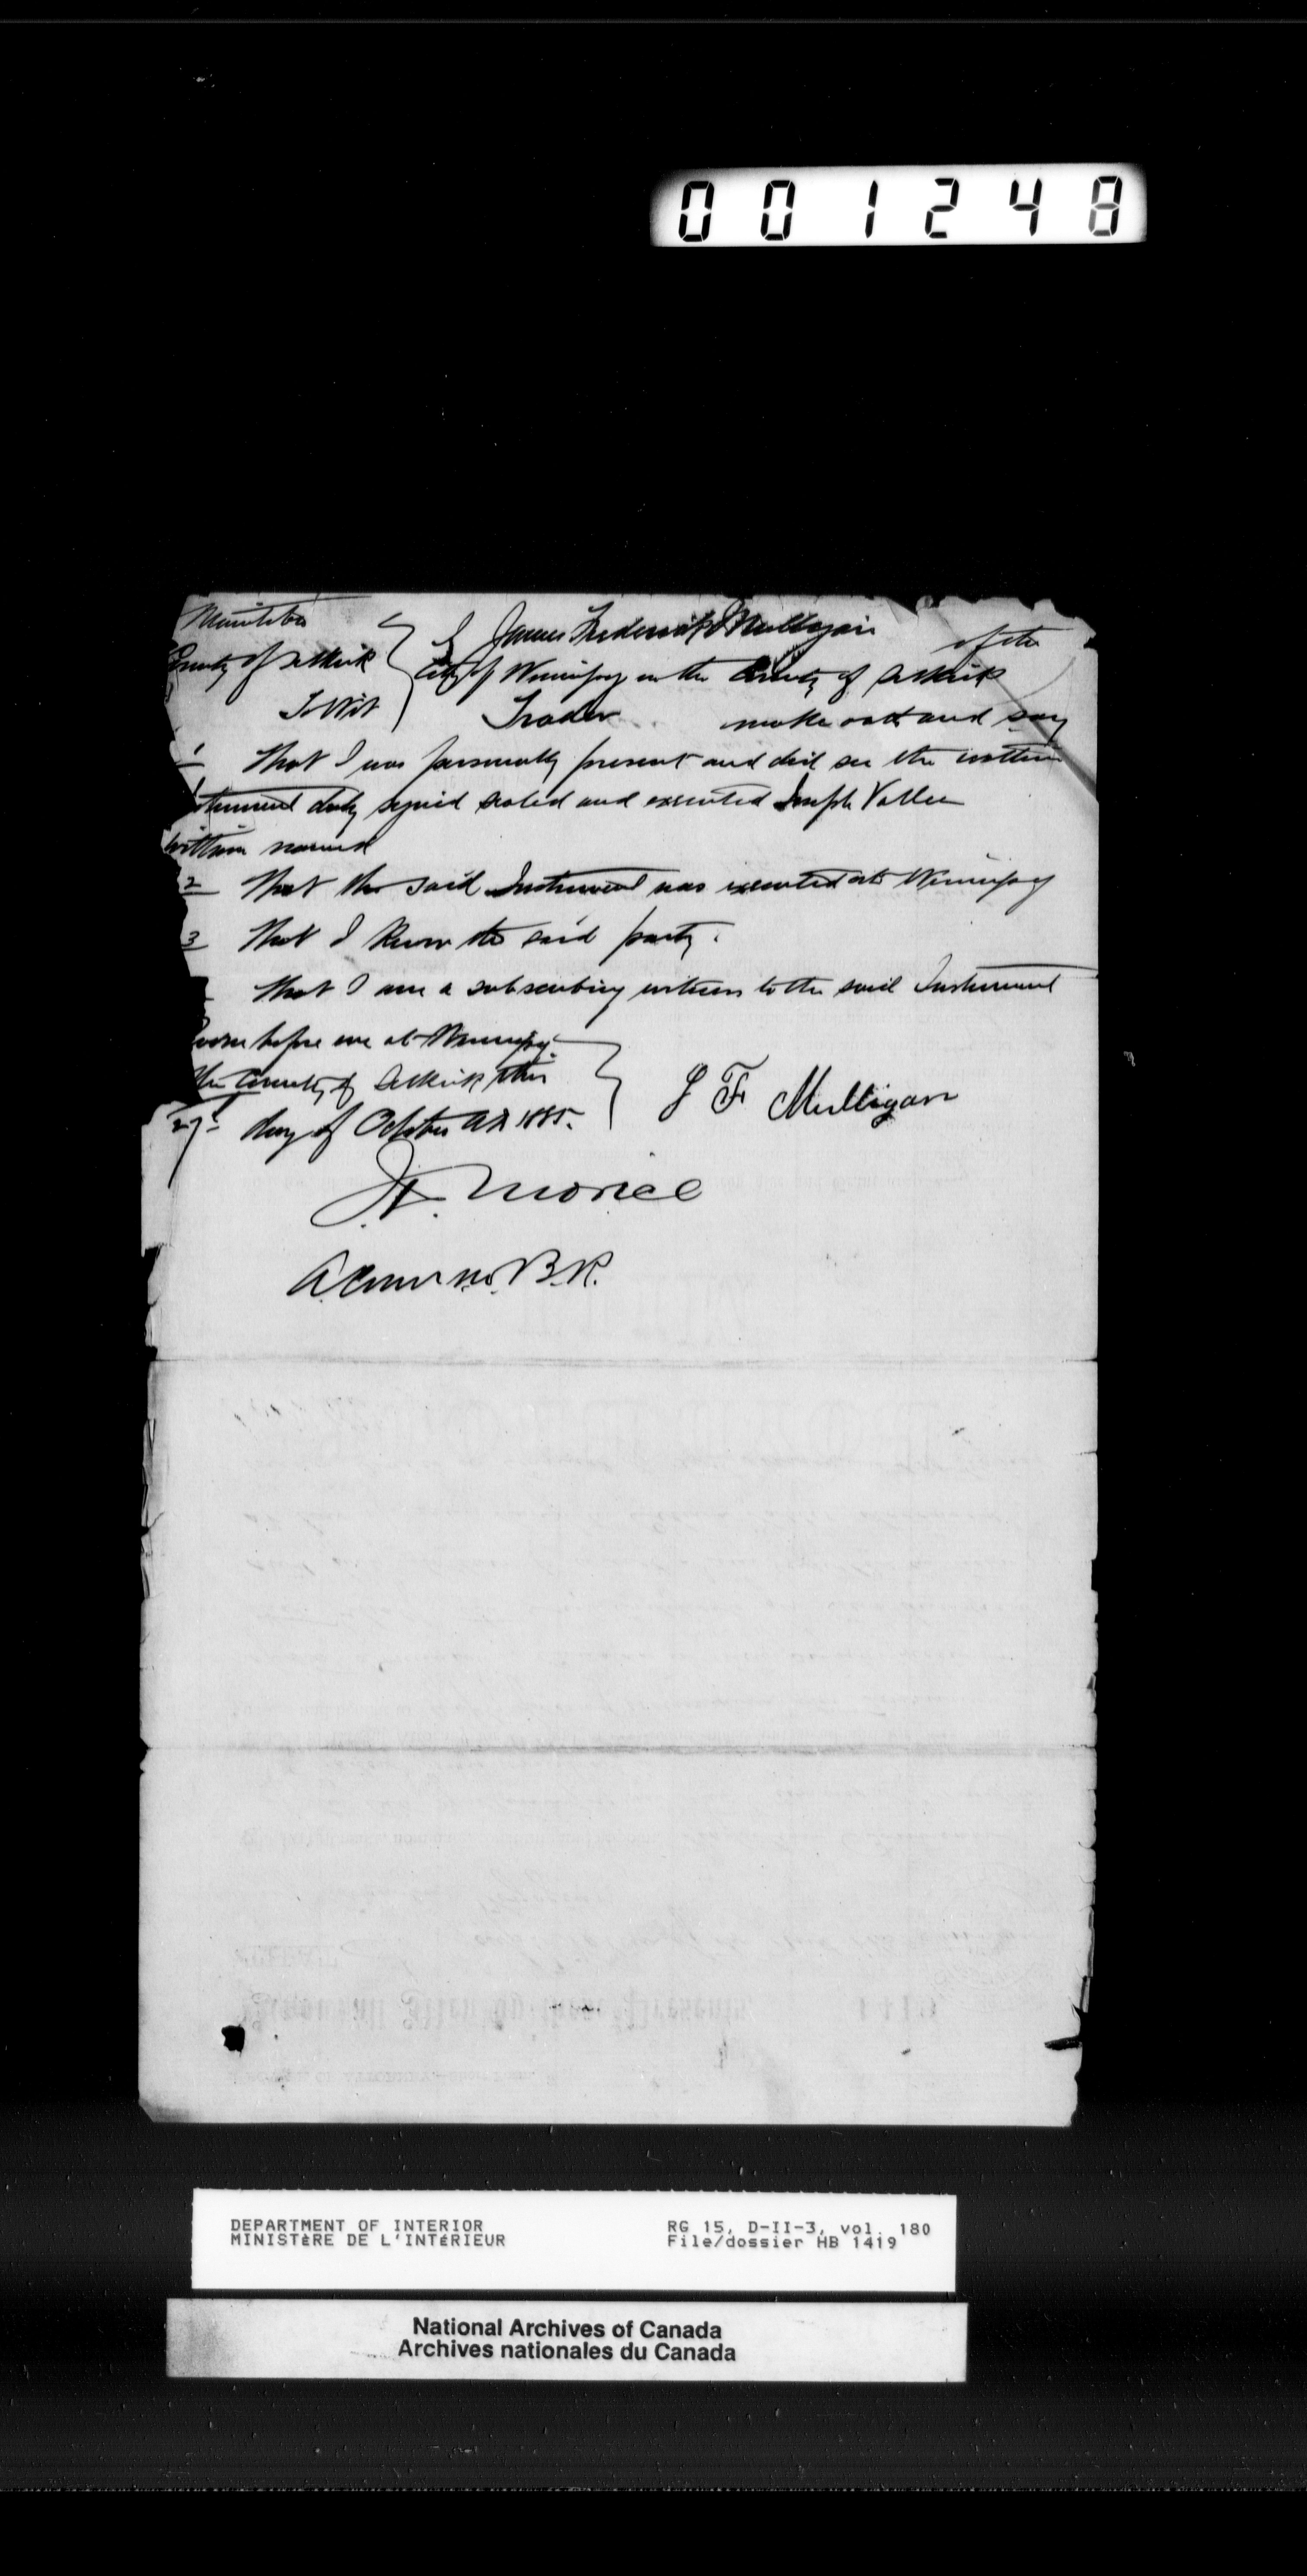 001248
Manitoba
County of Selkirk
To Wit
I James Frederick Mulligan of the
City of Winnipeg in the County of Selkirk
Trader make oath and say
1 That I was personally present and did see the within
Instrument duly signed sealed and executed Joseph Vallee
within named
2 That the said Instrument was executed at Winnipeg
3 That I know the said party.
That I am a subscribing witness to the said Instrument
Sworn before me at Winnipeg
the County of Selkirk this
27th day of October AD 1885.
J F Mulligan
Morice
B.R.
DEPARTMENT OF INTERIOR
MINISTÈRE DE L'INTÉRIEUR
RG 15, D-II-3, vol. 180
File/dossier HB 1419
National Archives of Canada
Archives nationales du Canada